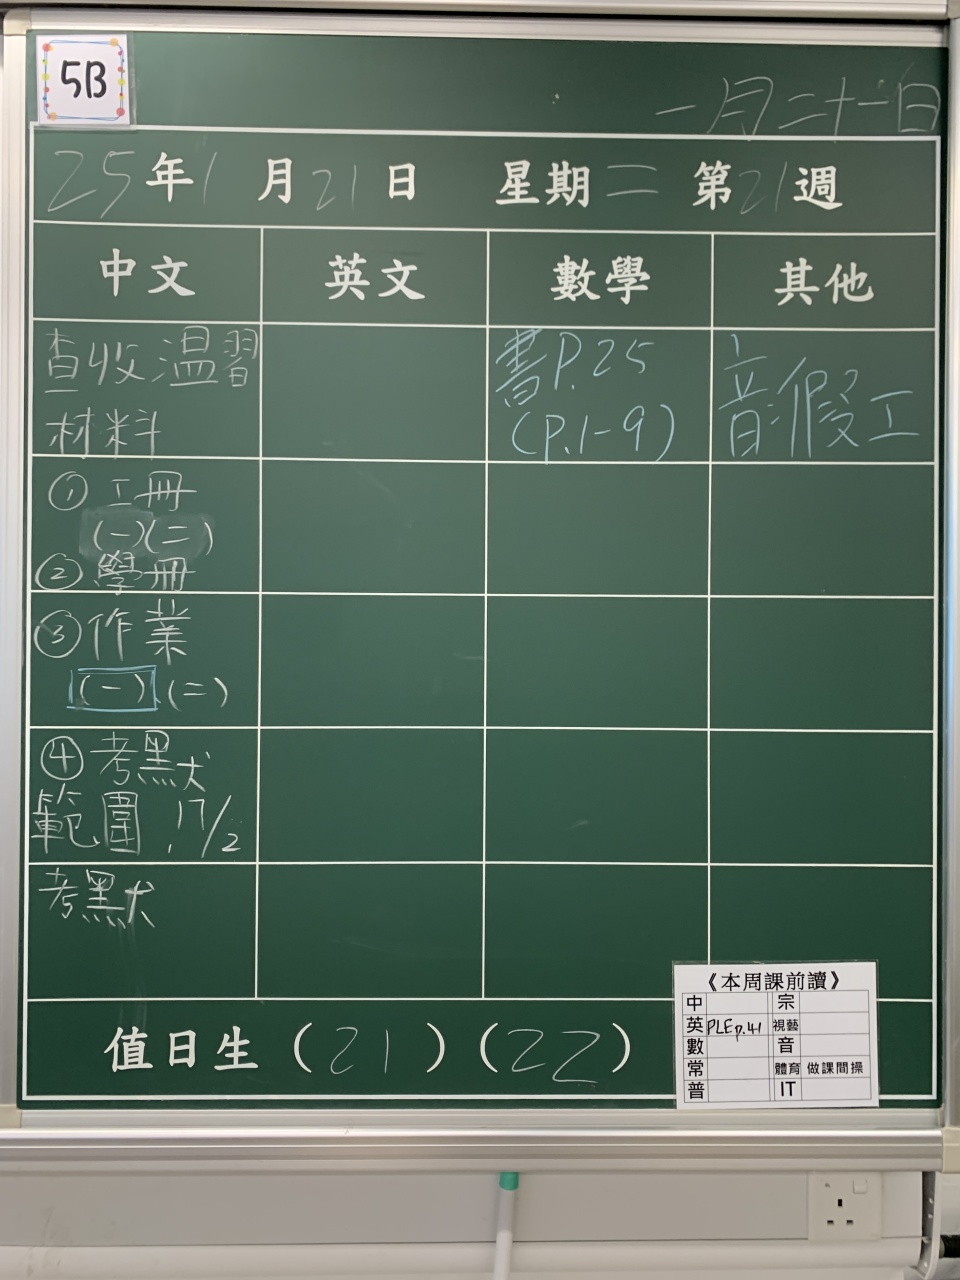 5B
一月二十一日
25年1月21日 星期二 第21週
中文 英文 數學 其他
查收溫習
材料
①工冊
(一)(二)
②學冊
③作業
(一)(二)
④考默
範圍 17/2
考默
書P.25
(P.1-9)
音:假工
值日生(21)(22)
《本周課前讀》
中 宗
英 PLE p.41 視藝
數 音
常 體育 做課間操
普 IT